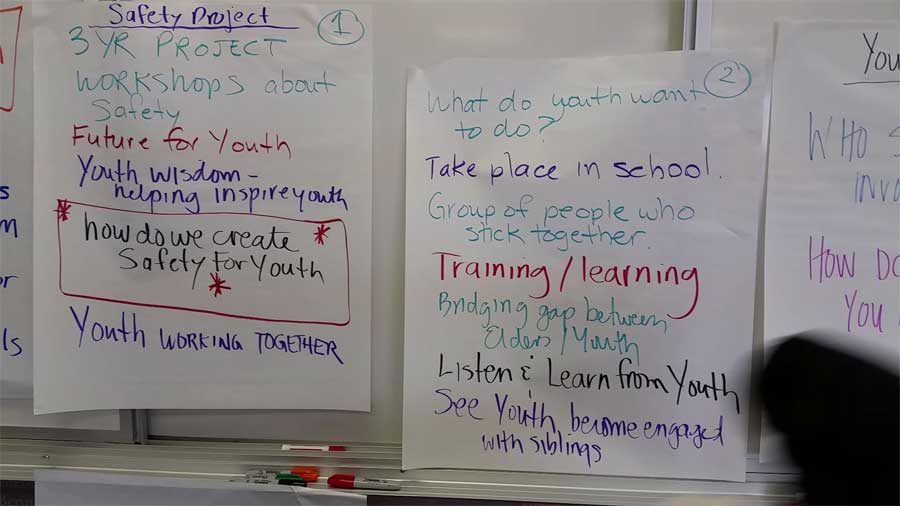 Safety Project
1
3 YR PROJECT
WORKSHOPS about
Safety
Future for Youth
Youth wisdom -
helping inspire youth
how do we create
Safety For Youth
Youth WORKING TOGETHER
2
What do youth want
to do?
Take place in school.
Group of people who
stick together.
Training/learning
Bridging gap between
Elders/Youth
Listen & Learn from Youth
See Youth become engaged
with siblings
You
WHO
HOW DO
YOU